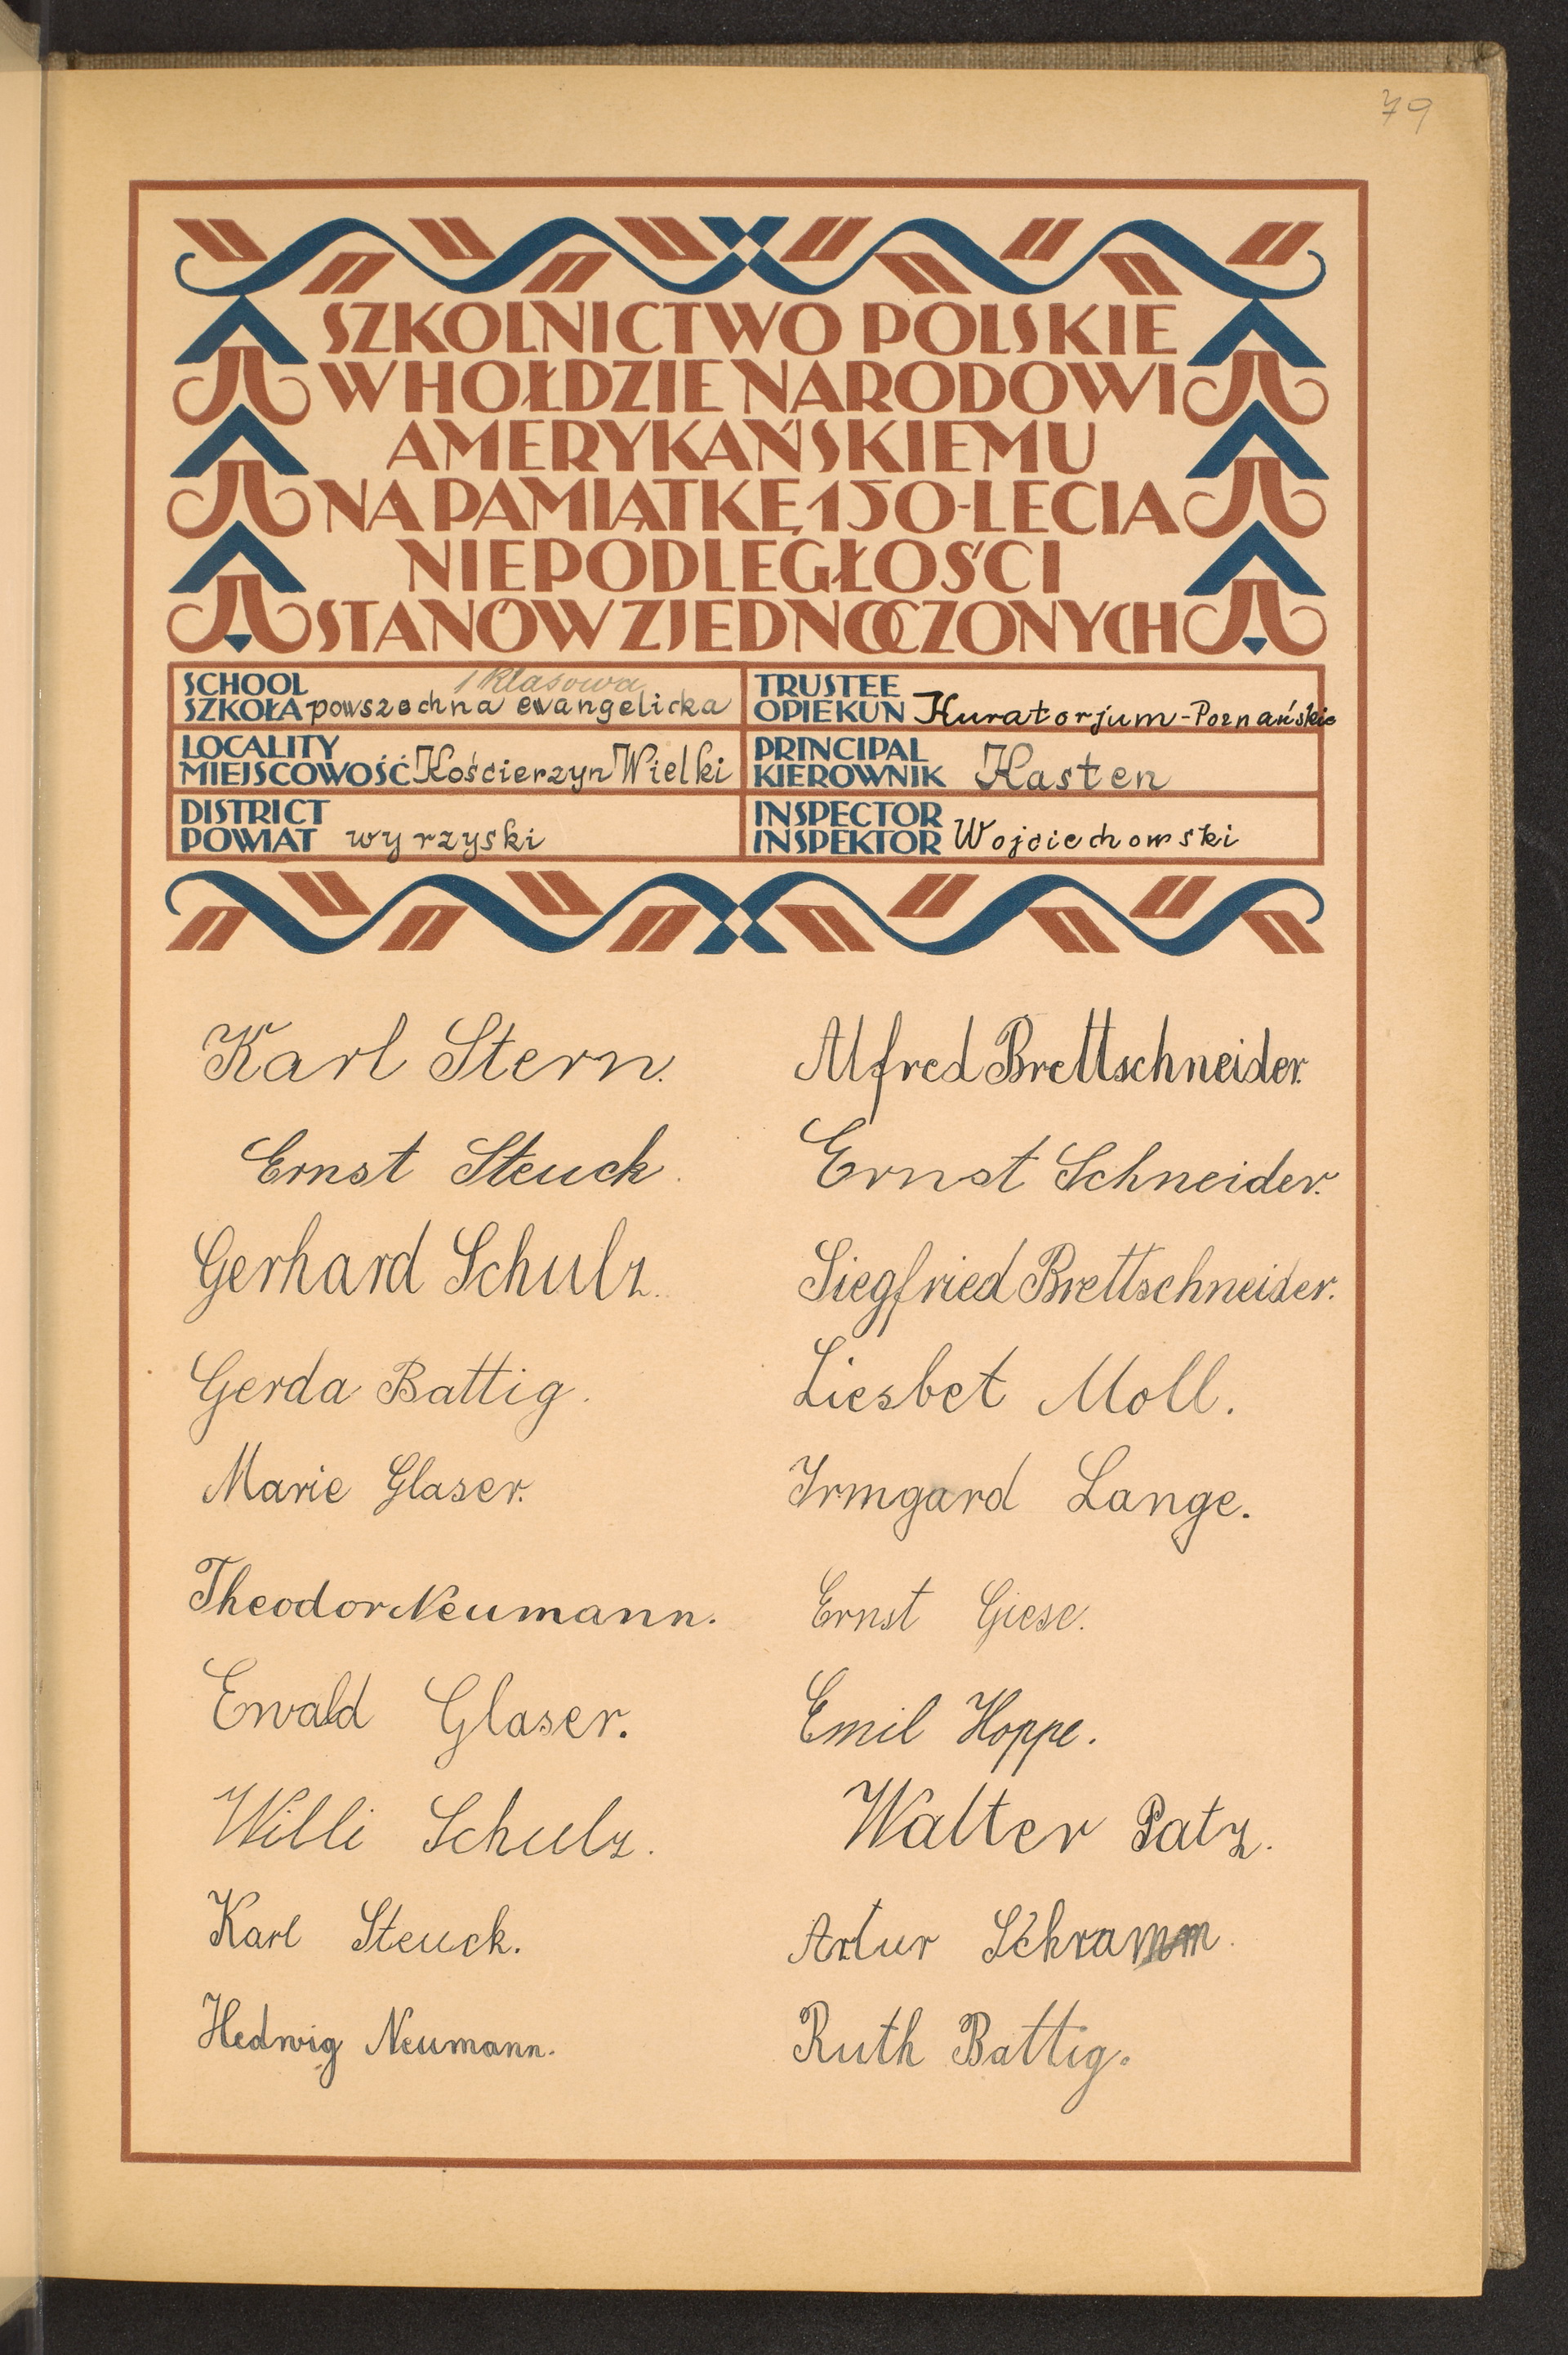 79
SZKOLNICTWO POLSKIE
W HOŁDZIE NARODOWI
AMERYKAŃSKIEMU
NA PAMIĄTKĘ 150-LECIA
NIEPODLEGŁOŚCI
STANÓW ZJEDNOCZONYCH
SCHOOL 1 klasowa
SZKOŁA powszechna ewangelicka
TRUSTEE
OPIEKUN Kuratorjum-Poznańskie
LOCALITY
MIEJSCOWOŚĆ Kościerzyn Wielki
PRINCIPAL
KIEROWNIK Hasten
DISTRICT
POWIAT wyrzyski
INSPECTOR
INSPEKTOR Wojciechowski
Karl Stern.
Ernst Steuck.
Gerhard Schulz.
Gerda Battig.
Marie Glaser.
Theodor Neumann.
Ewald Glaser.
Willi Schulz.
Karl Steuck.
Hedwig Neumann.
Alfred Brettschneider.
Ernst Schneider.
Siegfried Brettschneider.
Liesbet Moll.
Irmgard Lange.
Ernst Giese.
Emil Hoppe.
Walter Patz.
Artur Schramm.
Ruth Battig.